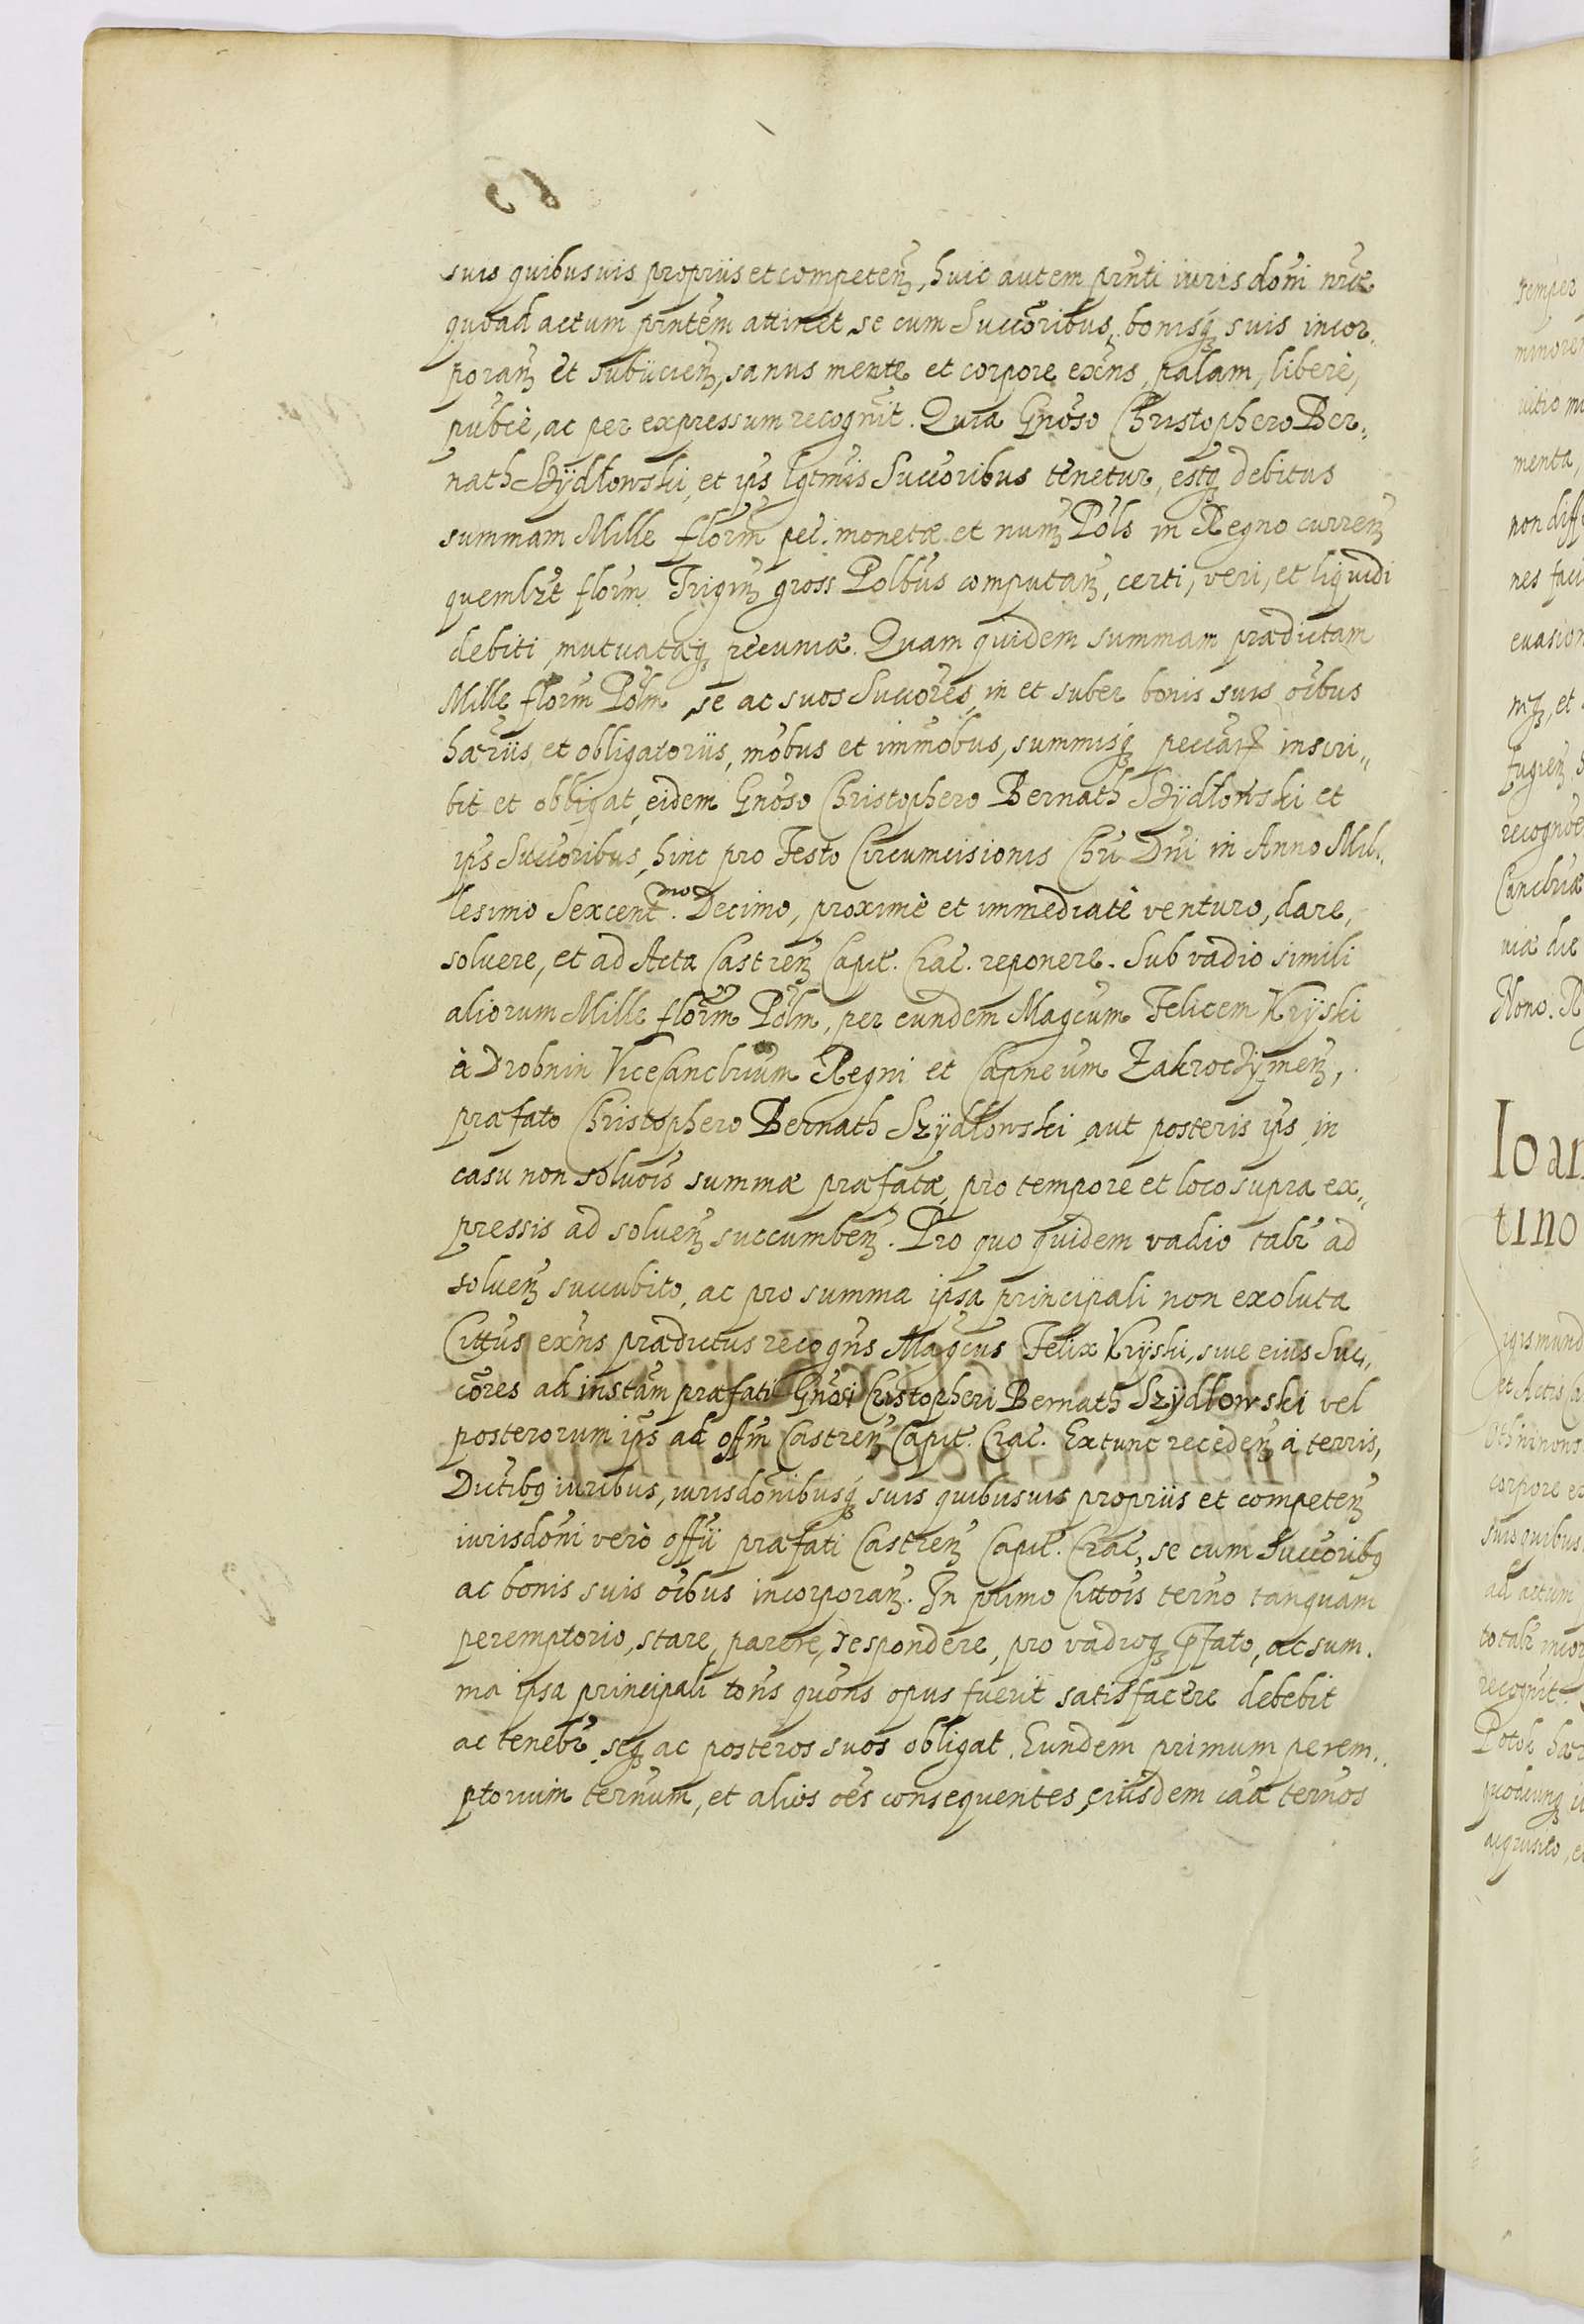 suis quibusuis proprijs et competen̄, huic autem prn̄ti iurisdōni nr̄æ
quoad actum prn̄tem attinet se cum Succōribus, bonisq̨ suis incor„
poran̄ et subijcien̄, sanus mente et corpore exn̄s, palam, liberè,
publ̄cè, ac per expressum recognit. Quia Gnōso Christophero Ber„
nath Szÿdłowski, et ips̄ lgtm̄is Succōribus tenetur, estq̨ debitus
summam Mille florn̄ pec. monetæ et num̄ Pol̄s in Regno curren̄
quemlz̄t florn̄ Trigin̄ gross Polb̄us computan̄, certi, veri, et liquidi
debiti, mutuatæq̨ pecuniæ. Quam quidem summam prædictam
Mille florn̄ Pol̄m, se ac suos Succōres, in et super bonis suis oībus
hær̄ijs, et obligatorijs, mōbus et immōbus, summisq̨ peccār̄ inscri„
bit et obligat, eidem Gnōso Christophero Bernath Szÿdłowski et
ips̄ Succōribus, hinc pro Festo Circumcisionis Chrī Dnī in Anno Mil„
lesimo Sexcentmo. Decimo, proximè et immediatè venturo, dare,
soluere, et ad Acta Castren̄ Capit. Crac. reponere. Sub vadio simili
aliorum Mille florn̄ Pol̄m, per eundem Magcum Felicem Krÿski
à Drobnin ViceCanclr̄ium Regni et Capneum Zakroczÿmen̄,
præfato Christophero Bernath Szÿdłowski, aut posteris ips̄, in
casu non solūois summæ præfatæ, pro tempore et loco supra ex„
pressis ad soluen̄ succumben̄. Pro quo quidem vadio talr̄ ad
soluen̄ succubito, ac pro summa ipsa principali non exoluta
Citt̄us exn̄s prædictus recogn̄s Magcus Felix Krÿski, siue eius Suc„
cōres ad instām præfati Gnōsi Cristopheri Bernath Szÿdłowski vel
posterorum ips̄ ad offm̄ Castren̄ Capit. Crac. Extunc receden̄ à terris,
Districtibq̨ iuribus, iurisdōnibusq̨ suis quibusuis proprijs et competen̄
iurisdōni verò offij præfati Castren̄ Capit. Crac, se cum Succōribq̨
ac bonis suis oībus incorporan̄. In primo Citt̄ois ter̄no tanquam
peremptorio, stare, parere, respondere, pro vadioq̨ p̄fato, ac sum„
ma ipsa principali totn̄s quōns opus fuerit satisfacere debebit
ac tenebr̄, seq̨ ac posteros suos obligat. Eundem primum perem„
ptorium ter̄num, et alios oēs consequentes, eiusdem caūæ ter̄nos
Ioan
tino